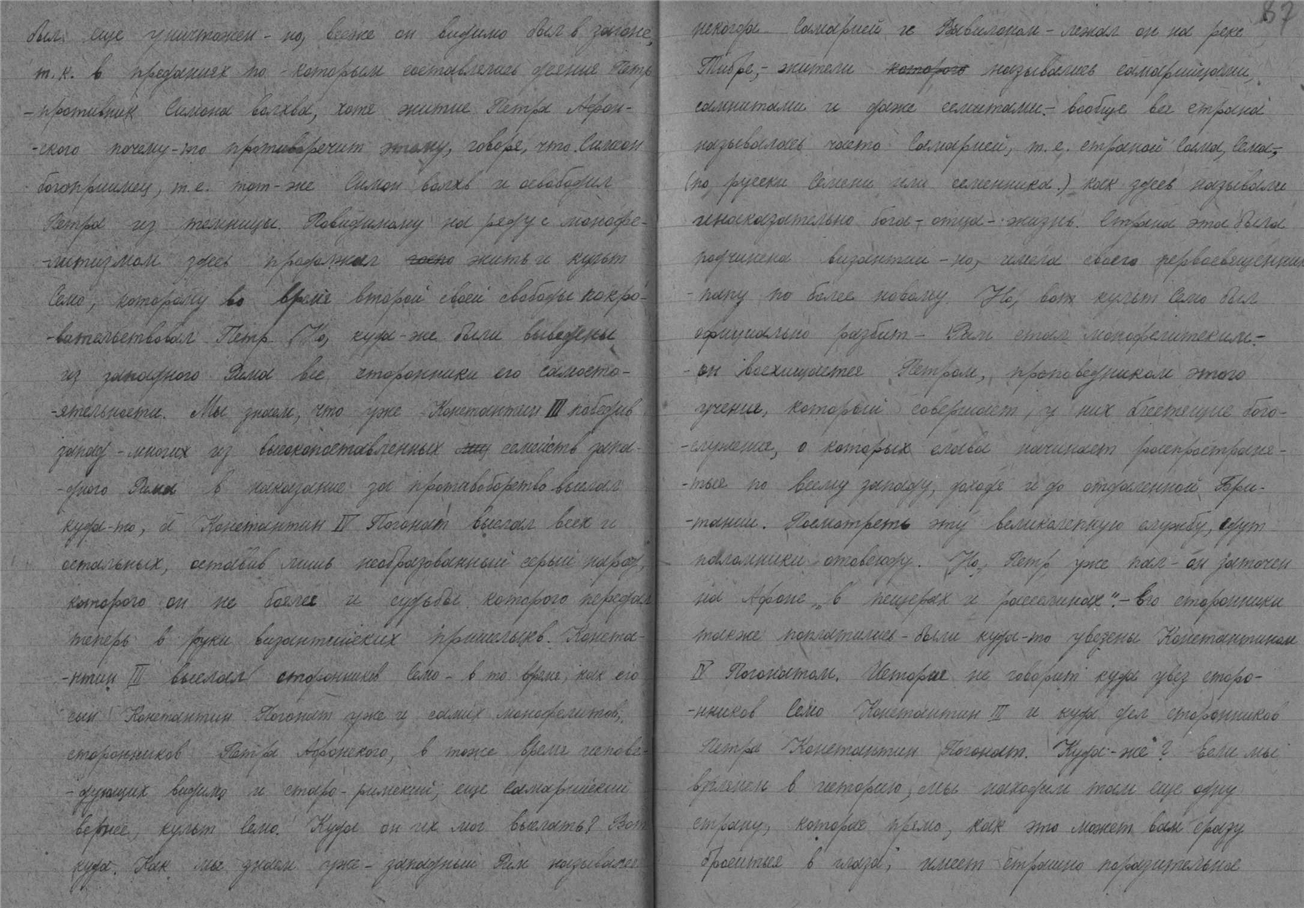 был еще уничтожен - но, все же он видимо был в загоне,
т.к. в преданиях по - которым составлялись деяния Петр
- противник Симона волхва, хотя житие Петра Афон-
-ского почему-то противоречит этому, говоря, что Симеон
богоприимец, т.е. тот-же Симон волхв и освободил
Петра из темницы. Повидимому на ряду с монофе-
-литизмом здесь продолжал жить и культ
Семо, которому во время второй своей свободы покро-
-вительствовал Петр. Но, куда-же были выведены
из западного Рима все сторонники его самосто-
-ятельности. Мы знаем, что уже Константин III победив
запад - многих из высокопоставленных семейств запа-
-дного Рима в наказание за противоборство выслал
куда-то, а Константин IV Погонат выслал всех и
остальных, оставив лишь необразованный серый народ,
которого он не боялся и судьбы которого передал
теперь в руки византийских пришельцев. Конста-
-нтин III выслал сторонников Семо - в то время, как его
сын Константин Погонат уже и самих монофелитов,
сторонников Петра Афонского, в тоже время испове-
-дующих видимо и старо-римский, еще самарийский
вернее, культ Семо. Куда он их мог выслать? Вот
куда. Как мы знаем уже - западный Рим назывался
67
некогда Самарией и Вавилоном - лежал он на реке
Тибре, - жители которого назывались самарийцами,
самнитами и даже семитами. - вообще вся страна
называлась часто Самарией, т.е. страной Сама, Сема,
(по русски Семени или семенника.) как здесь называли
иносказательно бога - отца - жизнь. Страна эта была
подчинена византии - но, имела своего первосвященника
- папу по более новому. Но, вот культ Семо был
официально разбит - Рим стал монофелитским. -
- он восхищается Петром, проповедником этого
учения, который совершает, у них блестящие бого-
-служения, о которых слава начинает распростране-
-ться по всему западу, доходя и до отдаленной Бри-
-тании. Посмотреть эту великолепную службу, идут
паломники отовсюду. Но, Петр уже пал - он заточен
на Афоне „в пещерах и расселинах". - Его сторонники
также поплатились - были куда-то увезены Константином
IV Погонатом. История не говорит куда увез сторо-
-нников Семо Константин III и куда дел сторонников
Петра Константин Погонат. Куда-же? Если мы
взглянем в историю, мы находим там еще одну
страну, которая прямо, как это может вам сразу
броситься в глаза, имеет страшно поразительное